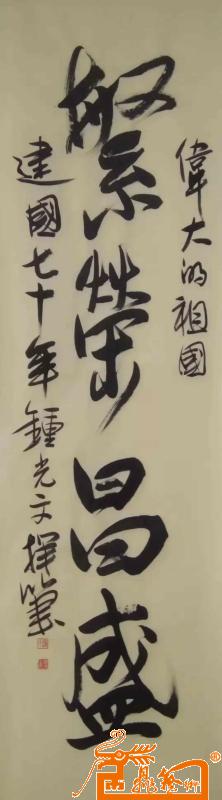 偉大的祖國
繁榮昌盛
建國七十年鍾光文揮筆